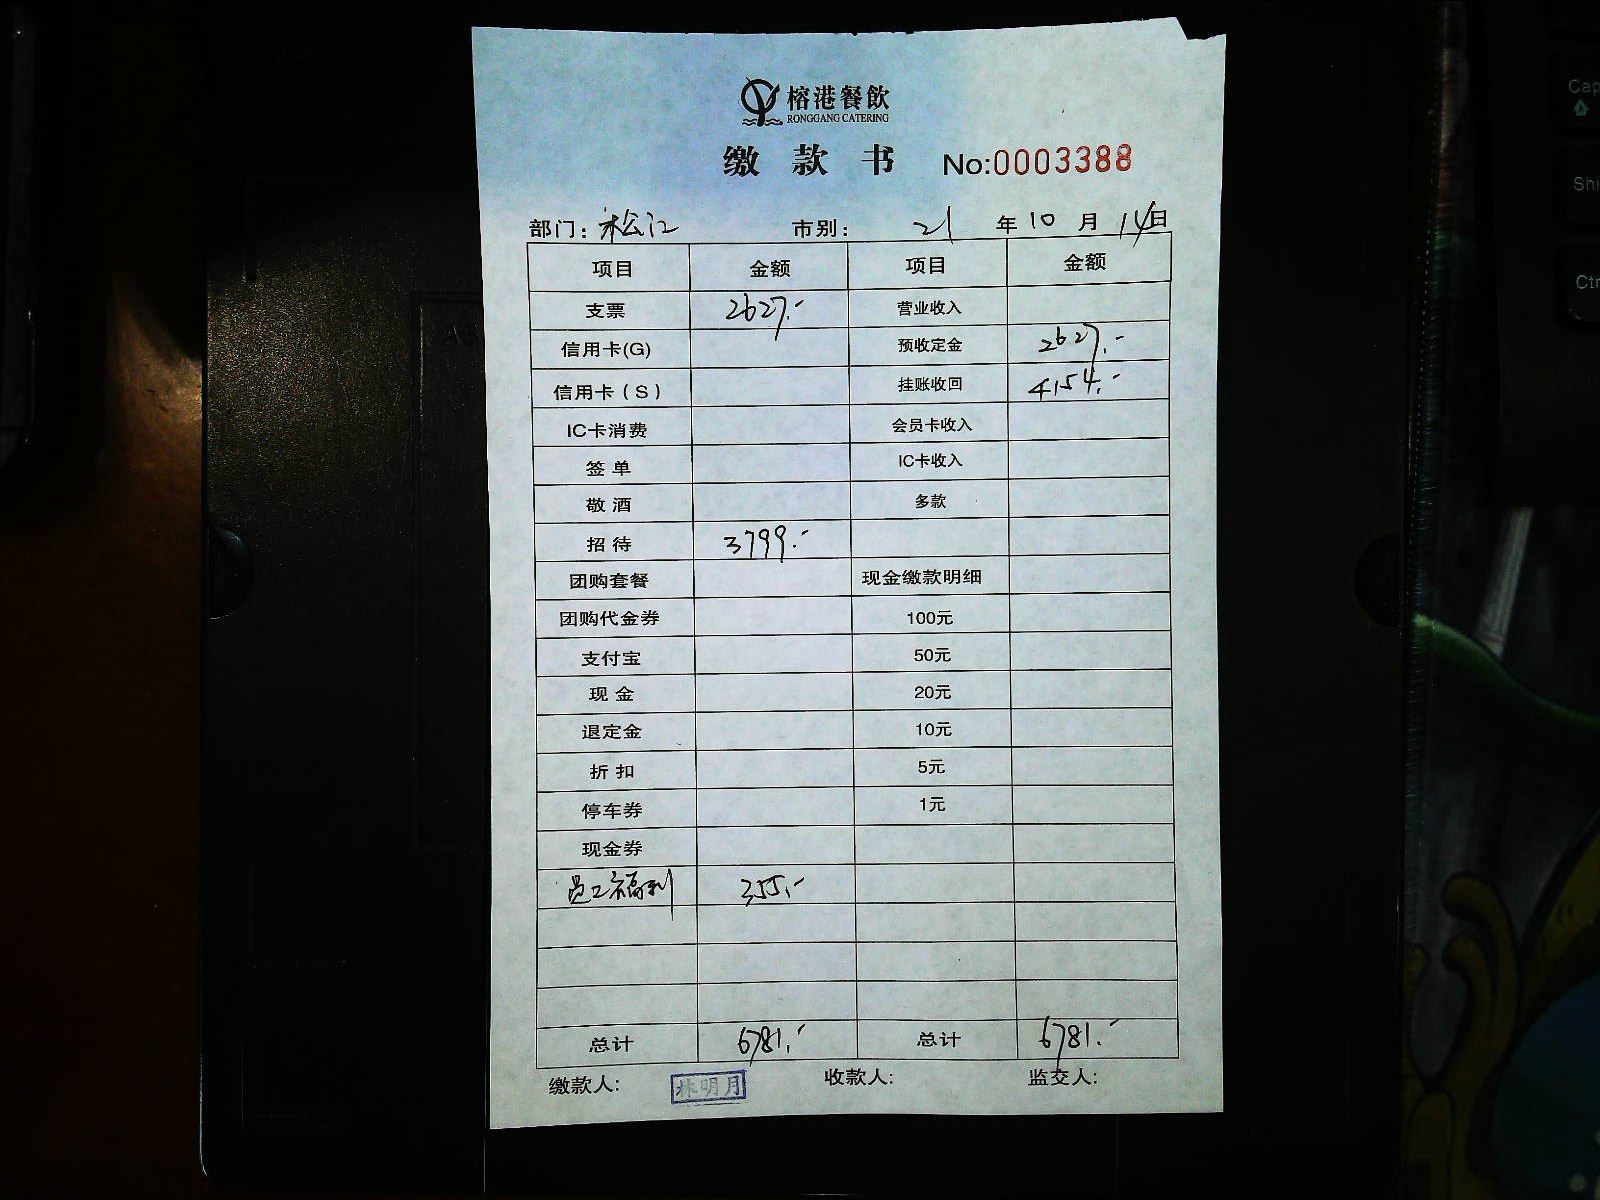 榕港餐飲
RONGGANG CATERING
缴款书 No:0003388
部门：松江 市别： 21年10月14日
项目 金额 项目 金额
支票 2627.- 营业收入
信用卡(G) 预收定金 2627.-
信用卡（S） 挂账收回 4154.-
IC卡消费 会员卡收入
签单 IC卡收入
敬酒 多款
招待 3799.-
团购套餐 现金缴款明细
团购代金券 100元
支付宝 50元
现金 20元
退定金 10元
折扣 5元
停车券 1元
现金券
员工福利 355.-
总计 6781.- 总计 6781.-
缴款人: 林明月 收款人: 监交人:
Cap
Shi
Ctr